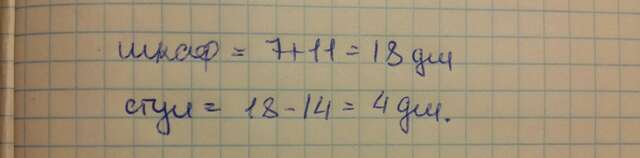 шкаф = 7+11 = 18 дм
стул = 18-14 = 4 дм.